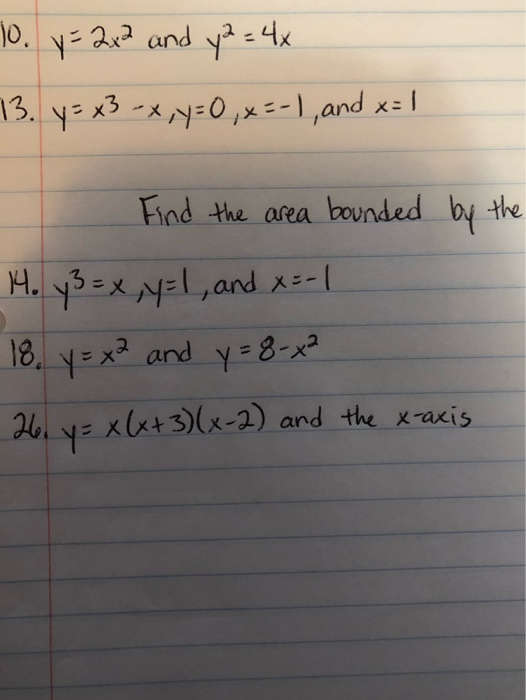 10. y = 2x² and y² = 4x
13. y = x³ - x, y=0, x=-1, and x=1
Find the area bounded by the
14. y³ = x, y=1, and x=-1
18. y = x² and y = 8-x²
26. y = x(x+3)(x-2) and the x-axis